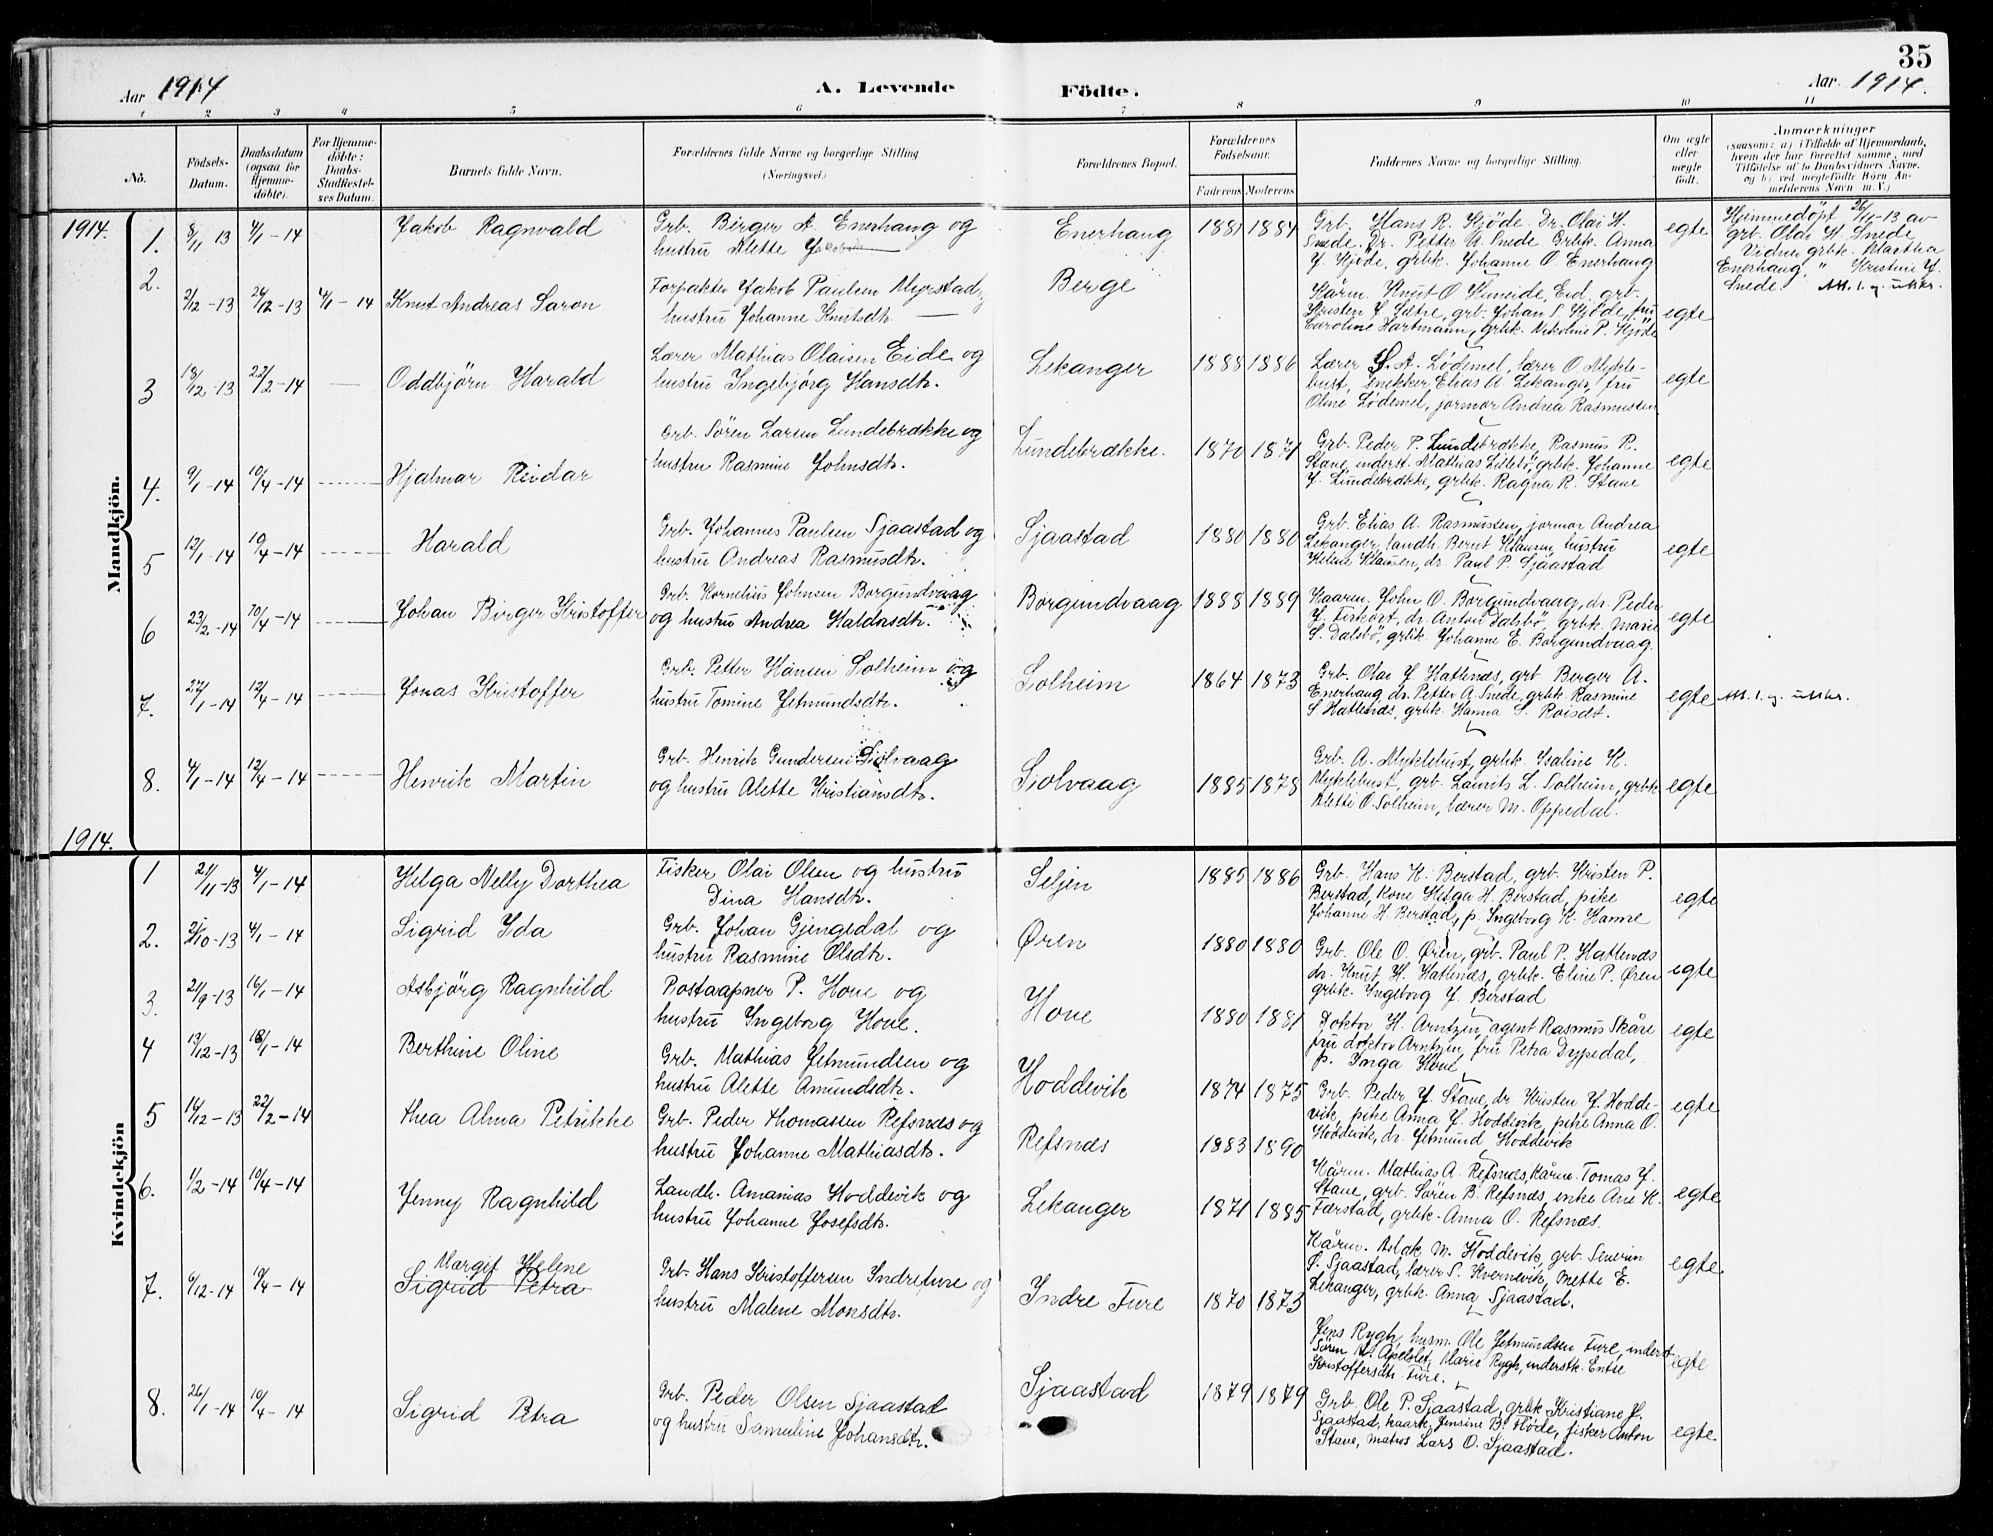 35
Aar 1914
A. Levende
Födte.
Aar 1914.
1 2 3 4 5 6 7 8 9 10 11
No.
Födsels-
Datum.
Daabsdatum
(ogsaa for
Hjemme-
döbte).
For Hjemme-
döbte:
Daabs-
Stadfæstel-
ses Datum.
Barnets fulde Navn.
Forældrenes fulde Navne og borgerlige Stilling
(Næringsvei.)
Forældrenes Bopæl.
Forældrenes
Fødselsaar.
Faderens Moderens
Faddernes Navne og borgerlige Stilling.
Om ægte
eller
uægte
født.
Anmærkninger
(saasom: a) i Tilfælde af Hjemmedaab,
hvem der har forrettet samme, med
Tilføielse af to Daabsvidners Navne,
og b) ved uægtefödte Börn An-
melderens Navn m. V.)
1914.
Mandkjön.
1. 8/11 13 4/1 - 14 Jakob Ragnvald
Grb. Birger A. Enerhaug og
hustru Alette
Enerhaug 1881 1884
Grb. Hans R. Hjöde. Dr. Olai H.
Snede. Dr. Petter A. Snede. Grbk. Anna
J. Hjöde, grbk. Johanne O. Enerhaug
egte
Hjemmedöpt 26/11-13 av
grb. Olai H. Snede
Vidner grbk. Martha
Enerhaug, " Kristine J.
Snede.
2. 2/12 - 13 26/12 - 13 4/1 - 14 Knut Andreas Saron
Forpakter Jakob Paulsen Myrstad
hustru Johanne Knutsdtr.
Berge
Kårm. Knut O Humeide, Eid. grb.
Kristen J. Sætre, grb. Johan S. Hjöde, fru
Caroline Hartmann, grbk. Nikoline P. Hjöde
egte
3 18/12 - 13 22/2 - 14 Oddbjörn Harald
Lærer Mathias Olaisen Eide og
hustru Ingebjörg Hansdtr.
Lekanger 1888 1886
Lærer J. A. Lödemel, lærer O. Mykle-
bust, snekker Elias A Lekanger, fru
Oline Lödemel, jormor Andrea Rasmussen
egte
4. 9/1 - 14 10/4 - 14 Hjalmar Reidar
Grb. Sören Larsen Lundebrække og
hustru Rasmine Johnsdtr.
Lundebrække. 1870 1871
Grb. Peder P. Lundebrække, Rasmus R.
Stave, inderst. Mathias Lillebö, grbk. Johanne
J. Lundebrække, grbk. Ragna R. Stave
egte
5 12/1 - 14 10/4 - 14 Harald
Grb. Johannes Paulsen Sjaastad og
hustru Andreas Rasmusdtr.
Sjaastad 1880 1880
Grb. Elias A. Rasmussen, jormor Andrea
Lekanger, landh. Bernt Klausen, hustru
Helene Klausen, dr. Paul P. Sjaastad
egte
6 23/2 - 14 10/4 - 14 Johan Birger Kristoffer
Grb. Kornelius Johnsen Borgundvaag
og hustru Andrea Haldorsdtr.
Borgundvaag 1888 1889
Kaarm. John O. Borgundvaag, dr. Peder
J. Fiskört, dr. Anton Dalsbö, grbk. Marie
S. Dalsbö, grbk Johanne E. Borgundvaag
egte
7. 27/1 - 14 12/4 - 14 Jonas Kristoffer
Grb. Petter Hansen Solheim og
hustru Tomine Jetmundsdtr.
Solheim 1864 1873
Grb. Olai J Hatlenæs, grb Berger A.
Enerhaug dr. Petter A. Snede, grbk. Rasmine
S Hatlenæs, grbk. Hanna S.
egte
8. 4/1 - 14 12/4 - 14 Henrik Martin
Grb. Henrik Gundersen Siolvaag
og hustru Alette Kristiansdtr.
Siolvaag 1885 1878
Grb. A. Myklebust, grbk. Isaline K.
Myklebust, grb. Laurits L. Solheim, grbk
Alette O. Solheim, lærer M. Oppedal.
egte
1914.
Kvindekjön
1 21/11-13 4/1 - 14 Helga Nelly Dorthea
Fisker Olai Olsen og hustru
Dina Hansdtr.
Seljen 1885 1886
Grb. Hans K. Berstad, grb. Kristen P.
Berstad, Kone Helga H. Berstad, pike
Johanne H. Berstad, p. Ingeborg K. Hamre
egte
2. 2/10 - 13 4/1 - 14 Sigrid Ida
Grb. Johan Gjengedal og
hustru Rasmine Olsdtr.
Øren 1880 1880
Grb. Ole O. Øren, grb. Paul P. Hatlenæs
dr. Knut H. Hatlenæs, grbk. Eline P. Øren
grbk. Ingeborg J. Berstad
egte
3. 21/9 - 13 16/1 - 14 Asbjörg Ragnhild
Postaapner P. Hove og
hustru Ingeborg Hove.
Hove 1880 1881
Doktor H. Arntzen, agent Rasmus Skåre
fru doktor Arntzen, fru Petra Dypedal,
p. Inga Hove
egte
4 13/12 - 13 18/1 - 14 Berthine Oline
Grb. Mathias Jetmundsen og
hustru Alette Amundsdtr.
Hoddevik 1874 1875
Grb. Peder J. Stave, dr. Kristen J. Hodde-
vik, pike Anna J. Hoddevik, pike Anna O.
Hoddevik, dr. Jetmund Hoddevik
egte
5 14/12 - 13 22/2 - 14 Thea Alma Petrikke
Grb. Peder Thomassen Refsnæs og
hustru Johanne Mathiasdtr.
Refsnæs 1883 1890
Kårm. Mathias A. Refsnæs, kårm. Tomas J.
Stave, grb. Sören B. Refsnæs, enke Ane K.
Færstad, grbk. Anna O. Refsnæs.
egte
6. 1/2 - 14 10/4 - 14 Jenny Ragnhild
Landh. Amanias Hoddevik og
hustru Johanne Josefsdtr.
Lekanger 1871 1885
Kårm. Aslak M. Hoddevik, grb. Severin
S. Sjaastad, lærer S. Kvernevik, Mette E.
Lekanger, grbk. Anna Sjaastad.
egte
7. 6/12 - 14 10/4 - 14 Margit Helene
Sigrid Petra
Grb. Hans Kristoffersen Indrefure og
hustru Malene Monsdtr.
Indre Fure 1870 1873
Jens Rygh, husm. Ole Jetmundsen Fure, inderst
Sören A. Apelset, Marie Rygh, inderstk. Entse
Kristoffersdtr. Fure.
egte
8. 26/1 - 14 10/4 - 14 Sigrid Petra
Grb. Peder Olsen Sjaastad
og hustru Samuline Johansdtr.
Sjaastad 1879 1879
Grb. Ole P. Sjaastad, grbk Kristiane J.
Sjaastad, kaark. Jensine B. Höde, fisker Anton
Stave, matros Lars O. Sjaastad.
egte.